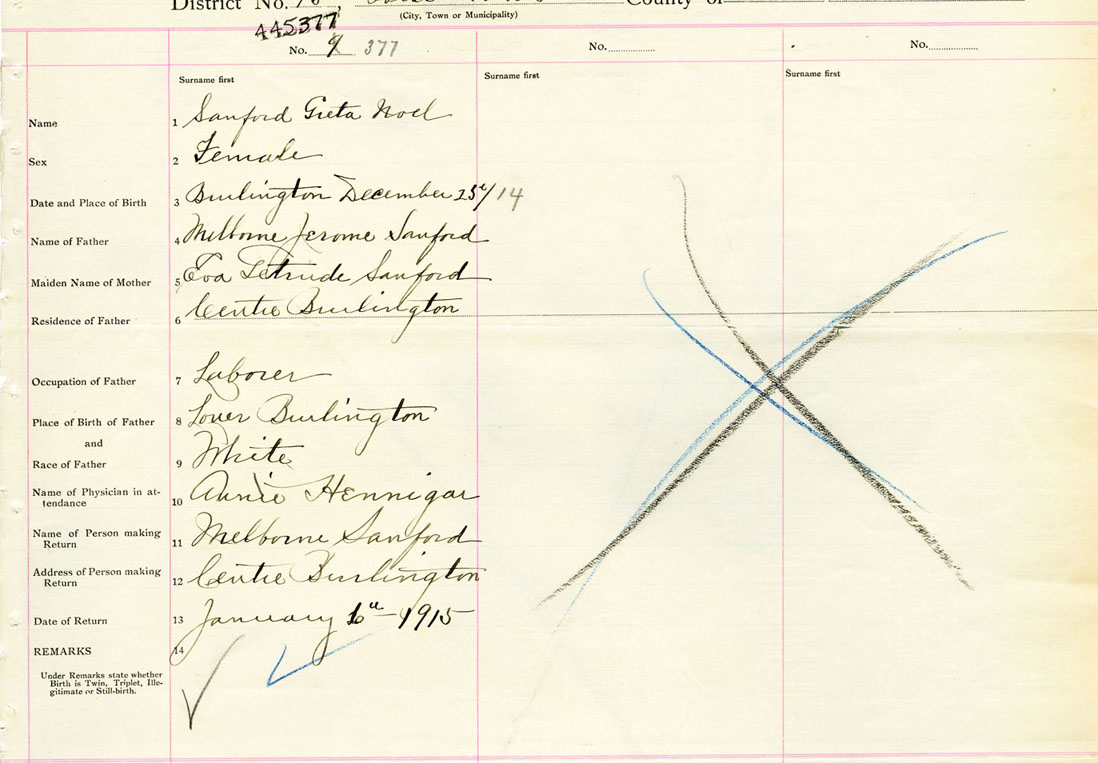 District No. 
County of
(City, Town or Municipality)
445377
No. 9 377
No.
No.
Surname first
Surname first
Surname first
Name 1 Sanford Greta Noel
Sex 2 Female
Date and Place of Birth 3 Burlington December 25th/14
Name of Father 4 Melborne Jerome Sanford
Maiden Name of Mother 5 Eva Getrude Sanford
Residence of Father 6 Centre Burlington
Occupation of Father 7 Laborer
Place of Birth of Father 8 Lower Burlington
and
Race of Father 9 White
Name of Physician in at-
tendance 10 Annie Hennigar
Name of Person making
Return 11 Melborne Sanford
Address of Person making
Return 12 Centre Burlington
Date of Return 13 January 6th 1915
REMARKS 14
Under Remarks state whether
Birth is Twin, Triplet, Ille-
gitimate or Still-birth.